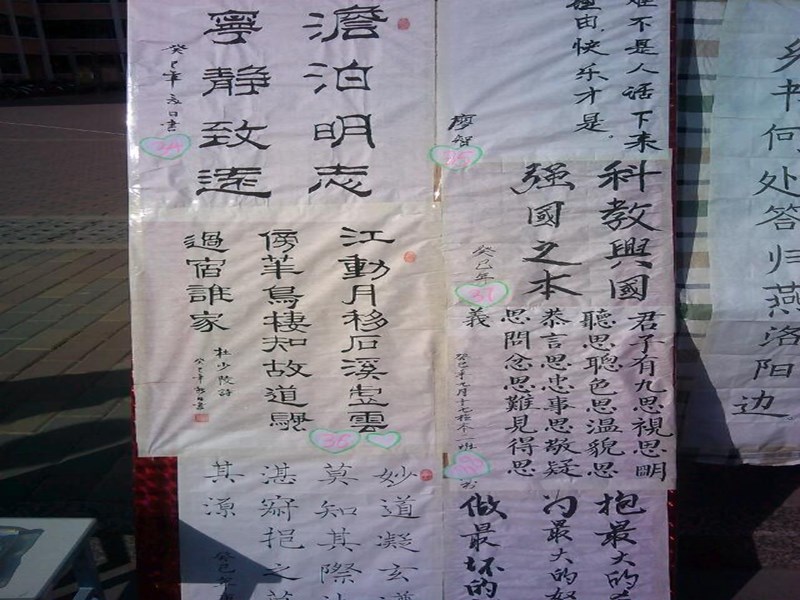 澹泊明志
寧静致遠
癸巳年夏日書
24
难不是人活下来
理由,快乐才是。
廖智
科教興國
强國之本
癸巳年
37
江動月移石溪虚雲
傍華鳥棲知故道颿
過宿誰家
杜少陵詩
癸巳年
36
君子有九思視思明
聽思聰色思温貌思
恭言思忠事思敬疑
思問忿思難見得思
義
妙道凝玄
莫知其際
湛寂挹之莫
其源
癸巳
抱最大的
最大的
做最坏的
乡书何处答归燕洛阳边